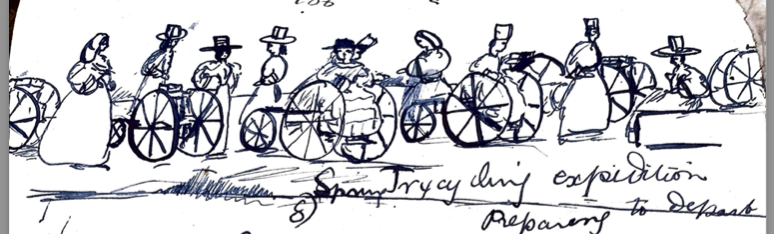 Trycycling expedition
Preparing to depart